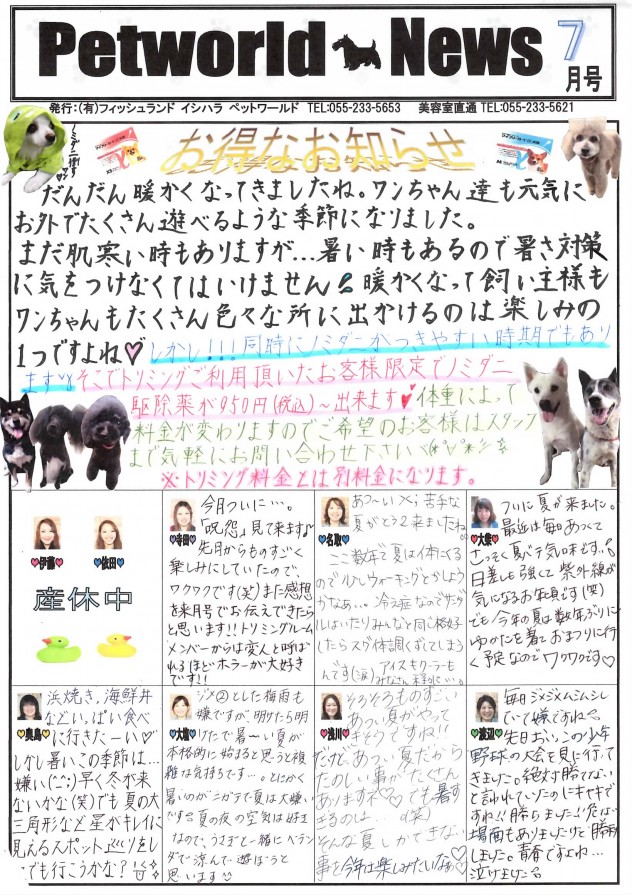 Petworld News 7月号
発行:(有)フィッシュランド イシハラ ペットワールド TEL:055-233-5653 美容室直通 TEL:055-233-5621
お得なお知らせ
だんだん暖かくなってきましたね。ワンちゃん達も元気に
お外でたくさん遊べるような季節になりました。
まだ肌寒い時もありますが...暑い時もあるので暑さ対策
に気をつけなくてはいけません!暖かくなって飼い主様も
ワンちゃんもたくさん色々な所に出かけるのは楽しみの
1つですよね♡しかし!!!同時にノミダニがつきやすい時期でもあり
ます そこでトリミングご利用頂いたお客様限定でノミダニ
駆除薬が950円(税込)~出来ます 体重によって
料金が変わりますのでご希望のお客様はスタッフ
まで気軽にお問い合わせ下さい
※トリミング料金とは別料金になります。
伊藤 依田
産休中
寺田
今月ついに…。
「呪怨」見て来ます♪
先月からものすごく
楽しみにしていたので、
ワクワクです(笑)また感想
を来月号でお伝えできたら
と思います!!トリミングルーム
メンバーからは変人と呼ば
れるほどホラーが大好き
です!!
名取
あつ~い 苦手な
夏がとうとう来ましたね
ここ数年で夏は体にくる
のでルルルウォーキングとかしよう
かなぁ…。冷え症なのでサンダ
ルはいたりみんなと同じ格好
したらスグ体調くずしてしまう
んです(涙) アイスキャラーも
みなさん
大柴
ついに夏が来ました。
最近は毎日あつくて
さっそく夏バテ気味です。
日差しも強くて紫外線が
気になるお年頃です(笑)
でも今年の夏は数年ぶりに
ゆかたを着ておまつりに行
く予定なのでワクワクです♡
奥島
浜焼き、海鮮丼
などいっぱい食べ
に行きたーい♡
しかし暑いこの季節は…
嫌い(^_^;)早く冬が来
ないかな(笑)でも夏の大
三角形など星がキレイに
見えるスポット巡りをし
でも行こうかな?
大塩
ジメ②とした梅雨も
嫌ですが、明けたら明
けたで暑~い夏が
本格的に始まると思うと複
雑な気持ちです…。とにかく
暑いのがニガテで夏は大嫌い
です 夏の夜の空気は好き
なので、うさぎと一緒にベラン
ダで涼んで遊ぼうと
思います
浅川
そろそろものすごい
あつい夏がやって
きそうですね!!
だけど、あつい夏だから
たのしい事がたくさん
ありますネ♡♡でも暑す
ぎるのは…。(笑)
そんな夏しかできない
事を今年は楽しみたいなぁ♡
渡辺
毎日ジメジメムシムシし
ていて嫌ですね
先日おいっこの少年
野球の大会を見に行って
きました。絶対勝てない
と言われていたのにドキドキで
すね!!勝ちました!!危ない
場面もありましたけど勝利
しました。青春ですよね…
泣けました